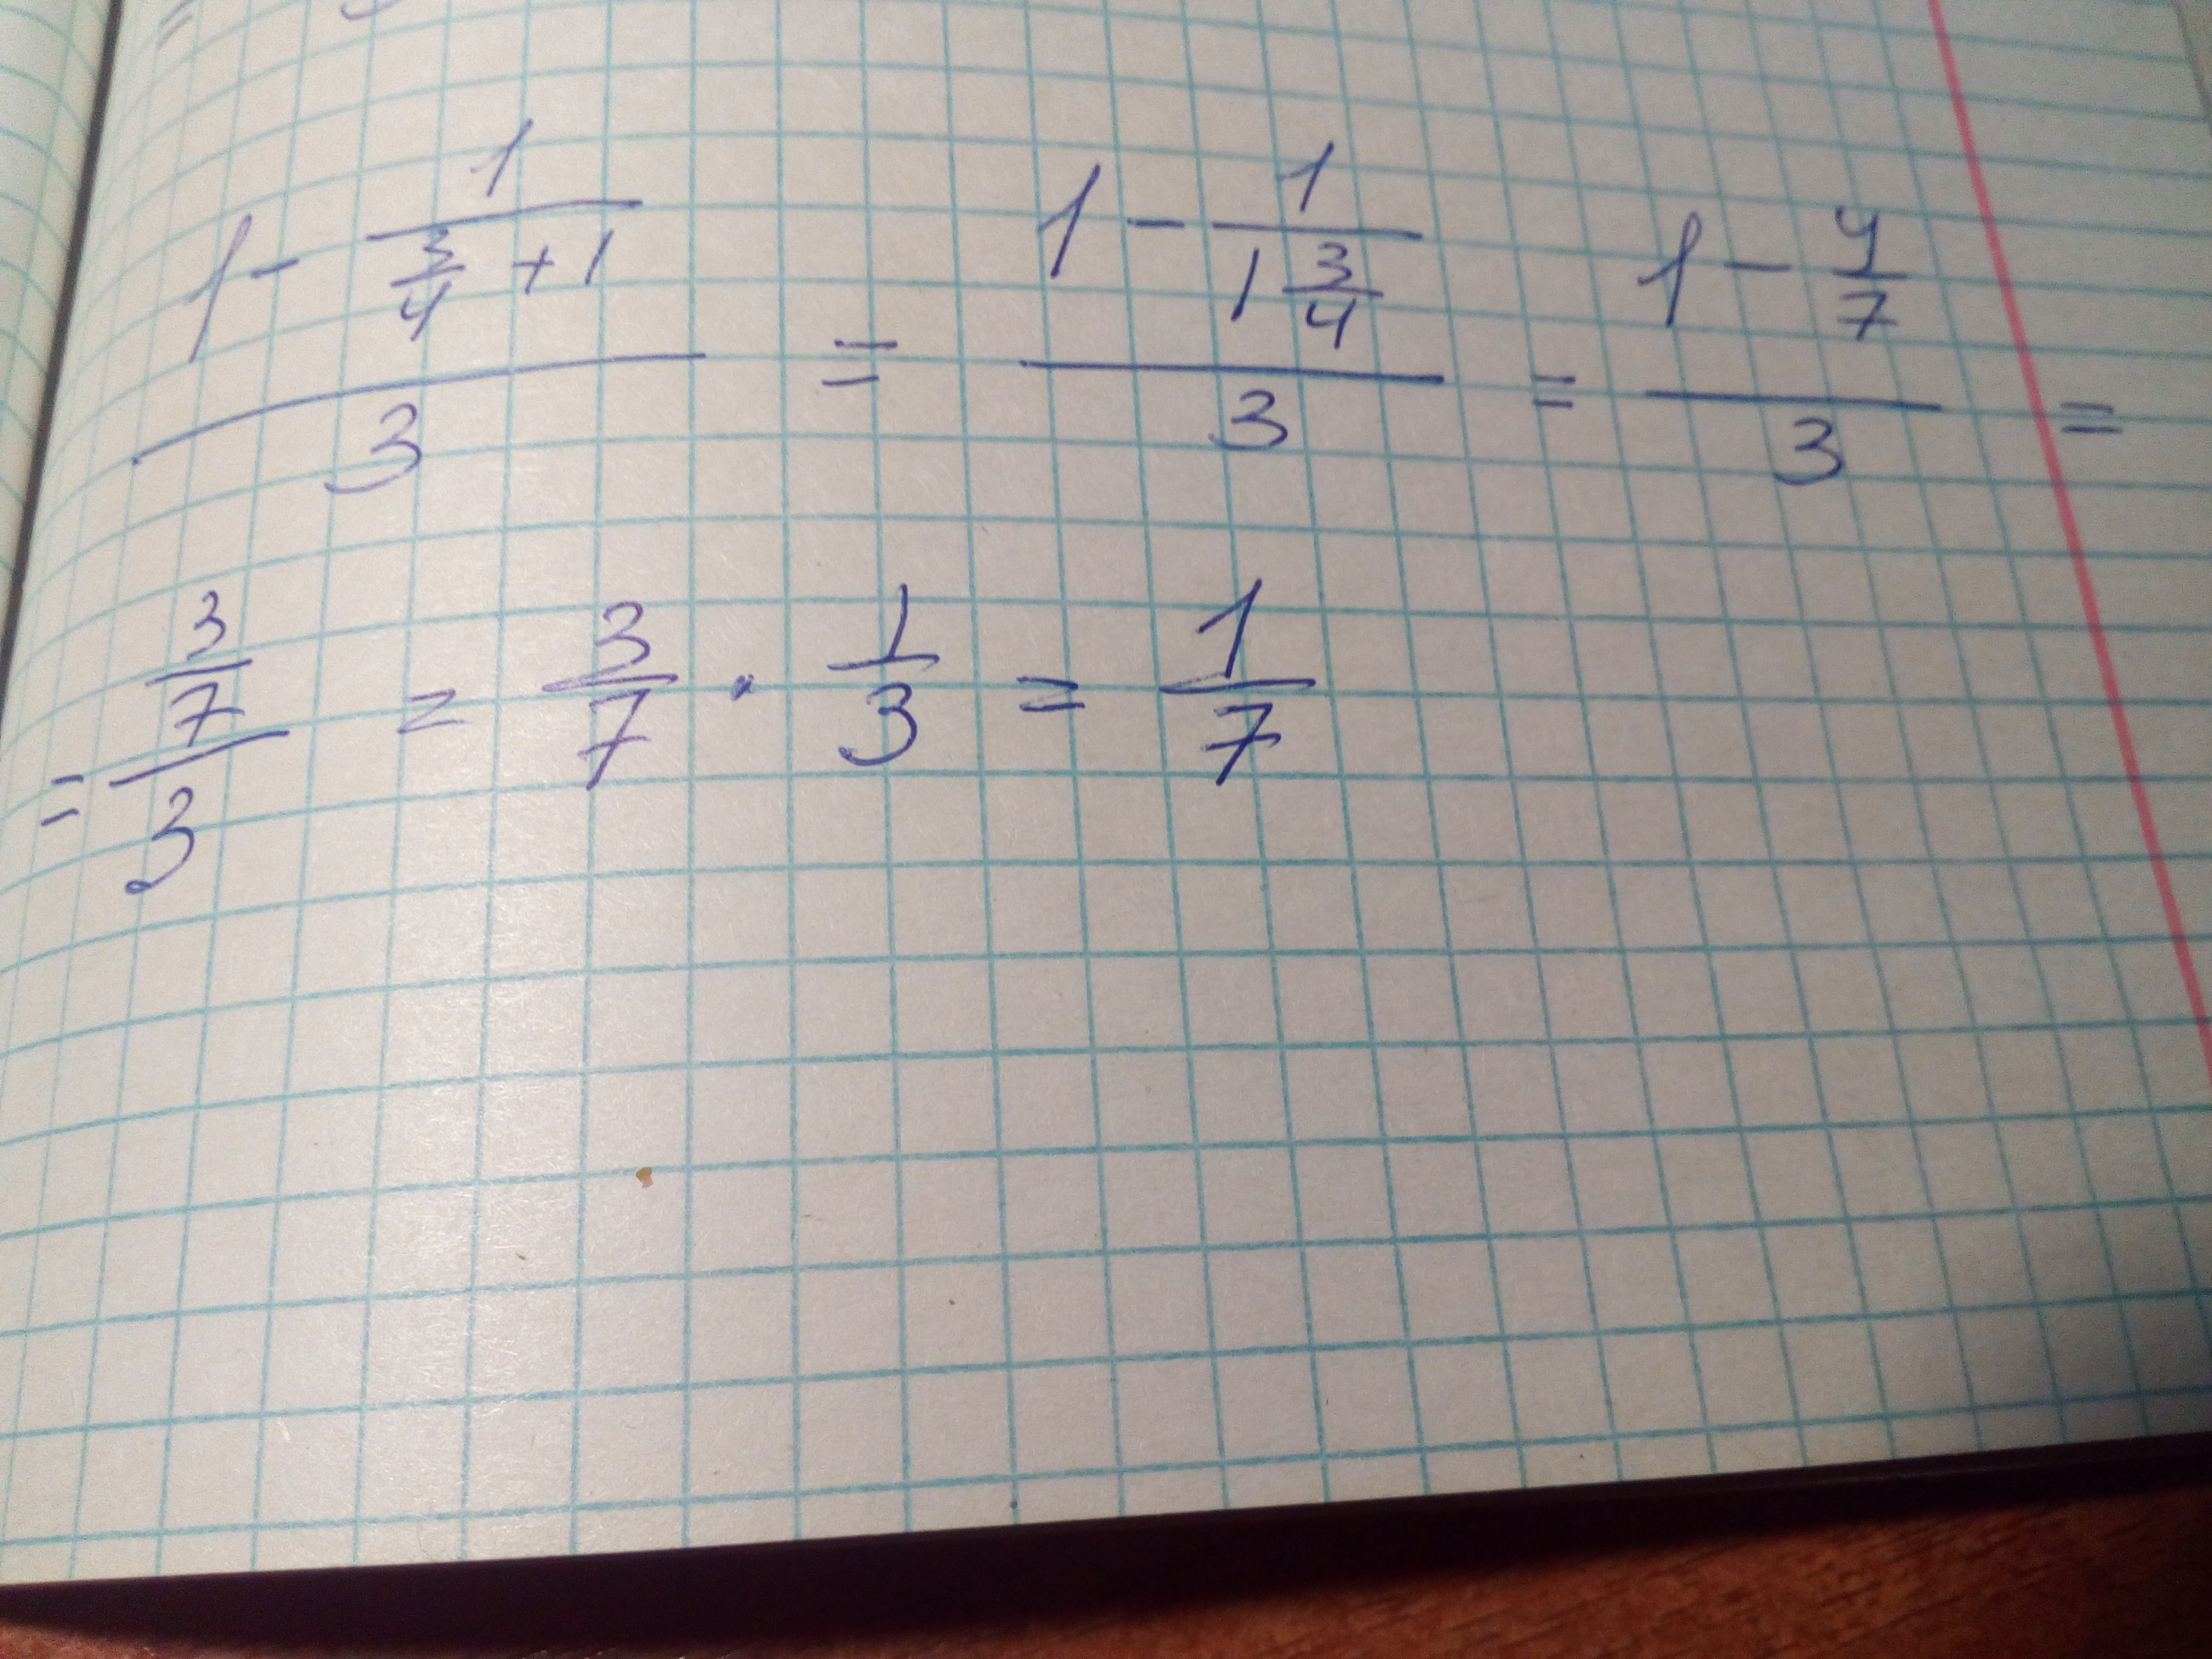 (1 - 1/(3/4 + 1))/3 = (1 - 1/(1 3/4))/3 = (1 - 4/7)/3 =
= (3/7)/3 = 3/7 · 1/3 = 1/7